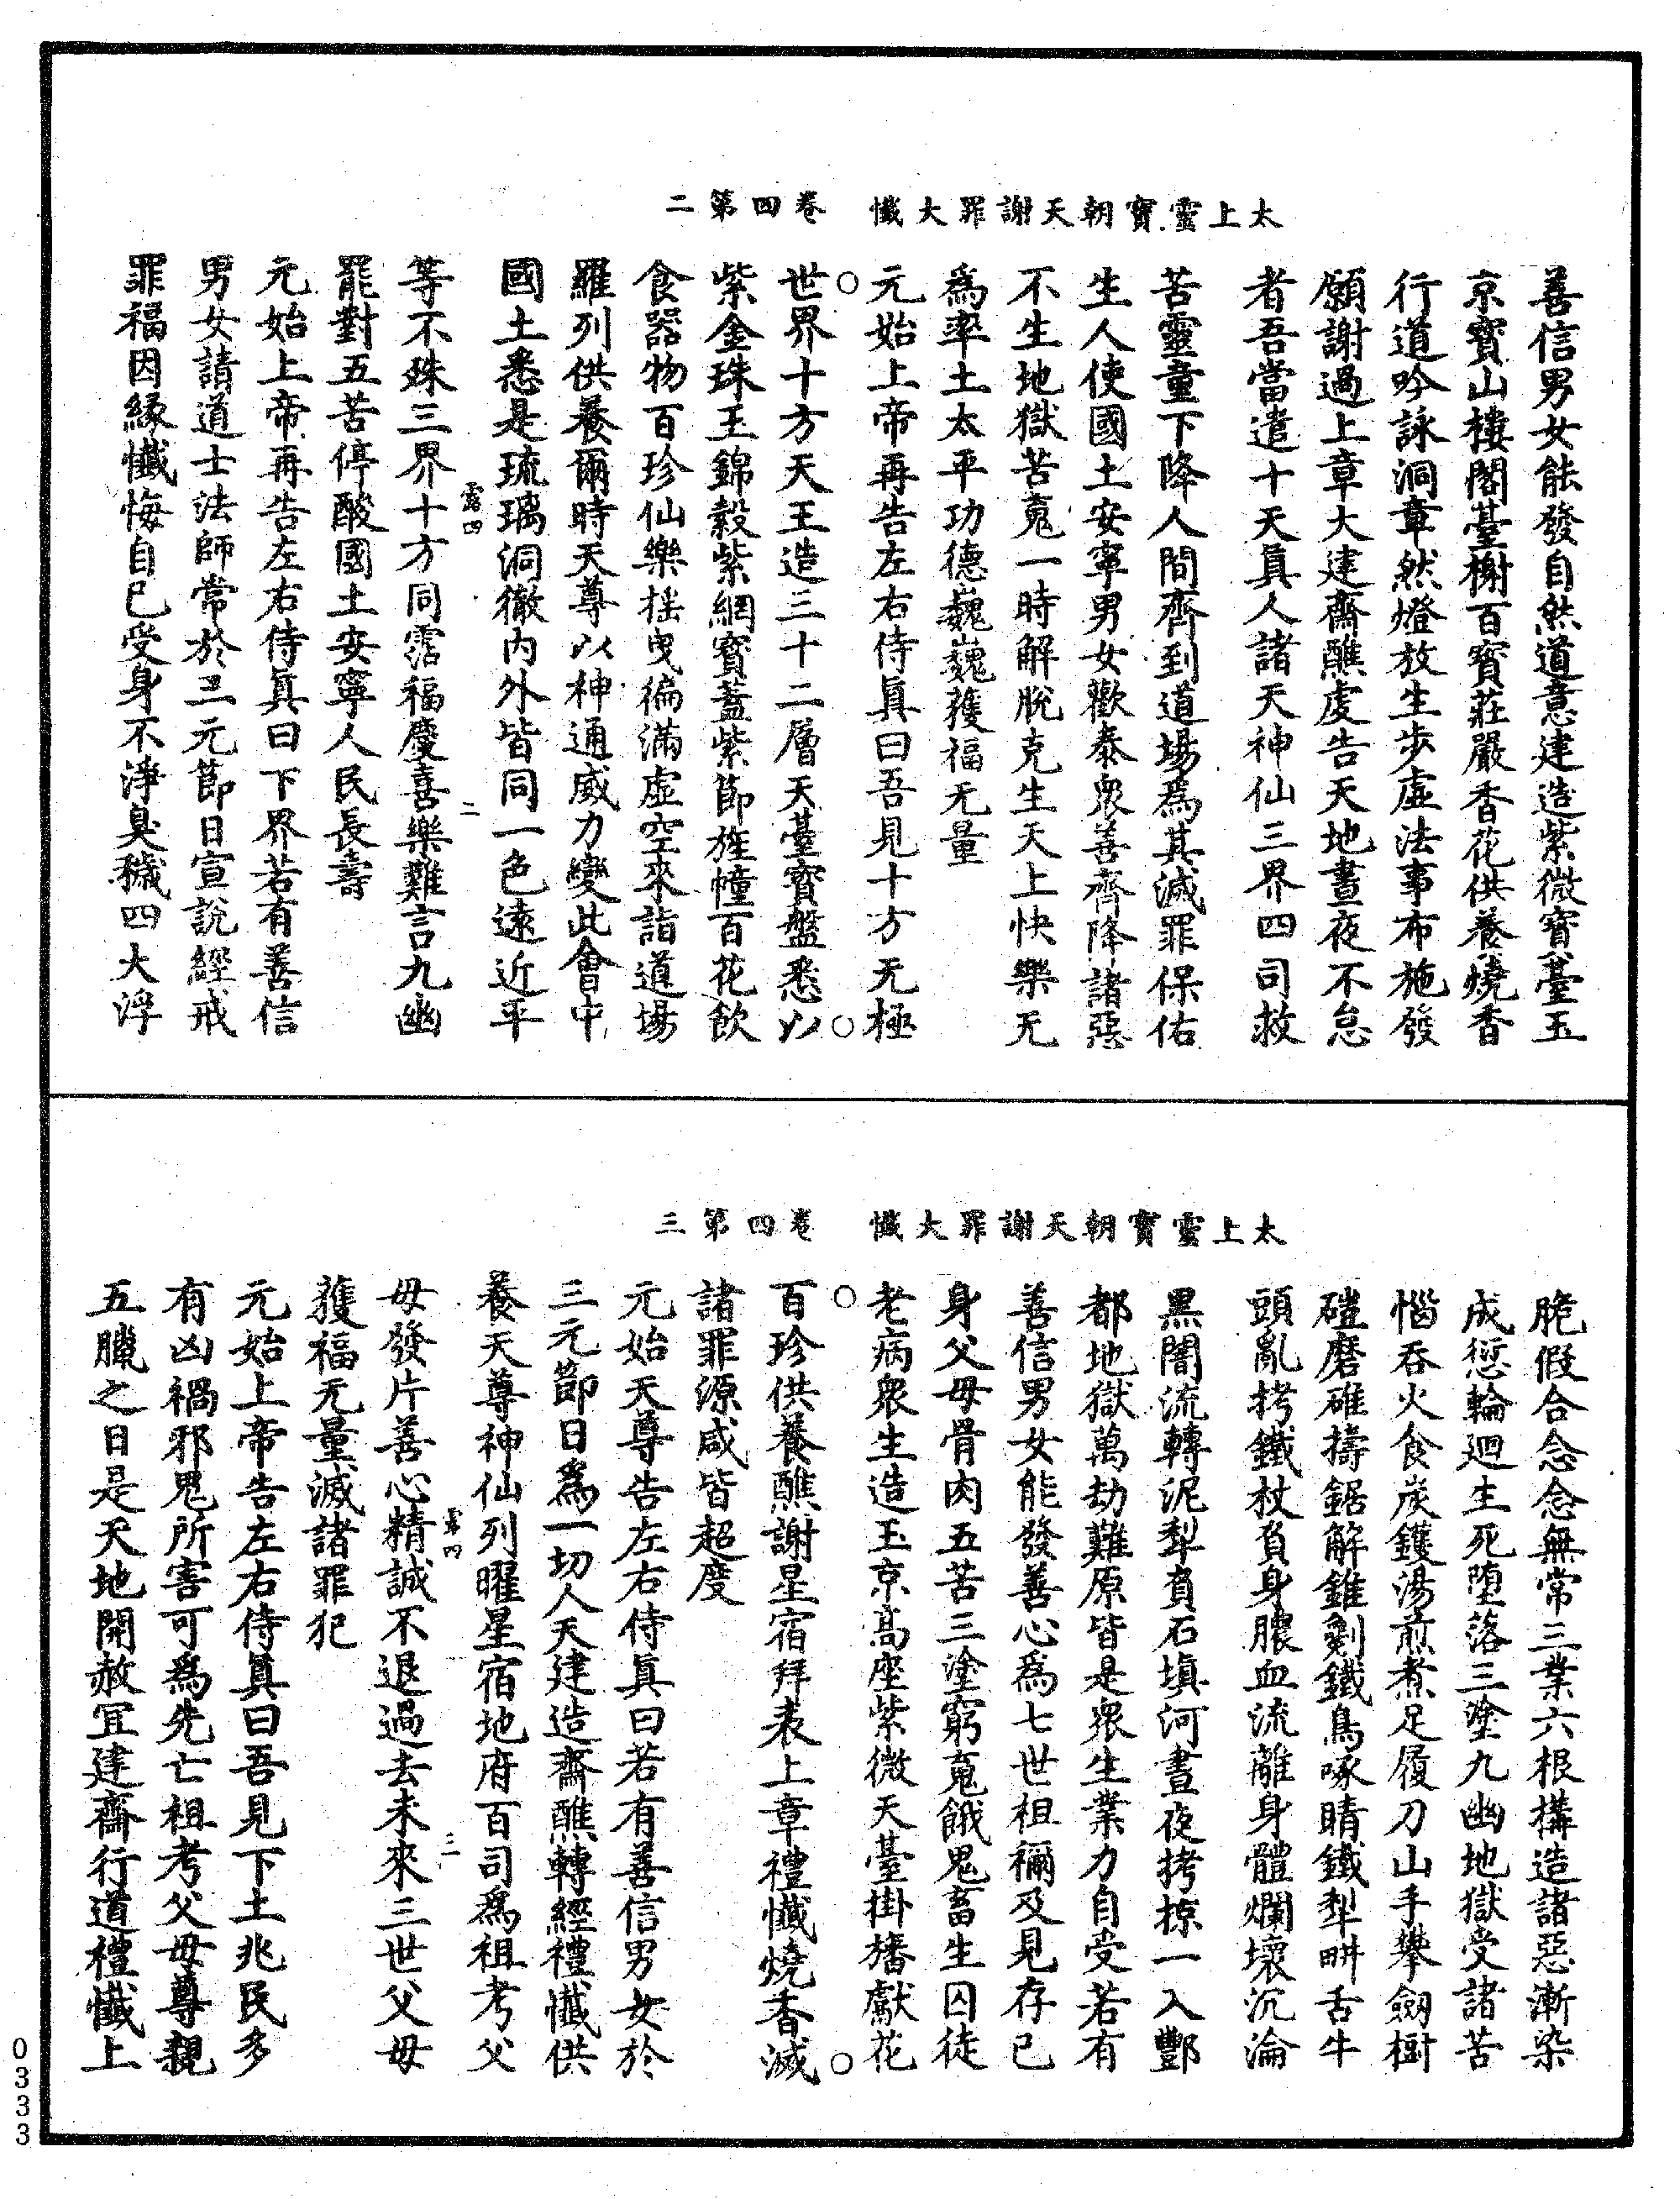 太上靈寶朝天謝罪大懺　卷四第二
善信男女能發自然道意建造紫微寶臺玉
京寶山樓閣臺榭百寶莊嚴香花供養燒香
行道吟詠洞章然燈放生步虛法事布施發
願謝過上章大建齋醮虔告天地晝夜不怠
者吾當遣十天真人諸天神仙三界四司救
苦靈童下降人間齊到道場為其滅罪保佑
生人使國土安寧男女歡泰眾善齊降諸惡
不生地獄苦䰟一時解脫克生天上快樂无
為率土太平功德巍巍獲福无量
元始上帝再告左右侍真曰吾見十方无極
世界十方天王造三十二層天臺寶盤悉以
紫金珠玉錦縠紫網寶蓋紫節旌幢百花飲
食器物百珍仙樂搖曳徧滿虛空來詣道場
羅列供養爾時天尊以神通威力變此會中
國土悉是琉璃洞徹內外皆同一色遠近平
露四　二
等不殊三界十方同霑福慶喜樂難言九幽
罷對五苦停酸國土安寧人民長壽
元始上帝再告左右侍真曰下界若有善信
男女請道士法師常於三元節日宣說經戒
罪福因緣懺悔自己受身不淨臭穢四大浮
太上靈寶朝天謝罪大懺　卷四第三
脆假合念念無常三業六根構造諸惡漸染
成愆輪迴生死墮落三塗九幽地獄受諸苦
惱吞火食炭鑊湯煎煮足履刀山手攀劒樹
磑磨碓擣鋸解錐剝鐵鳥啄睛鐵犁畊舌牛
頭亂拷鐵杖負身膿血流離身體爛壞沉淪
黑闇流轉泥犁負石填河晝夜拷掠一入酆
都地獄萬劫難原皆是眾生業力自受若有
善信男女能發善心為七世祖禰及見存己
身父母骨肉五苦三塗窮䰟餓鬼畜生囚徒
老病眾生造玉京高座紫微天臺掛旛獻花
百珍供養醮謝星宿拜表上章禮懺燒香滅
諸罪源咸皆超度
元始天尊告左右侍真曰若有善信男女於
三元節日為一切人天建造齋醮轉經禮懺供
養天尊神仙列曜星宿地府百司為祖考父
露四　三
母發片善心精誠不退過去未來三世父母
獲福无量滅諸罪犯
元始上帝告左右侍真曰吾見下土兆民多
有凶禍邪鬼所害可為先亡祖考父母尊親
五臘之日是天地開赦宜建齋行道禮懺上
0333